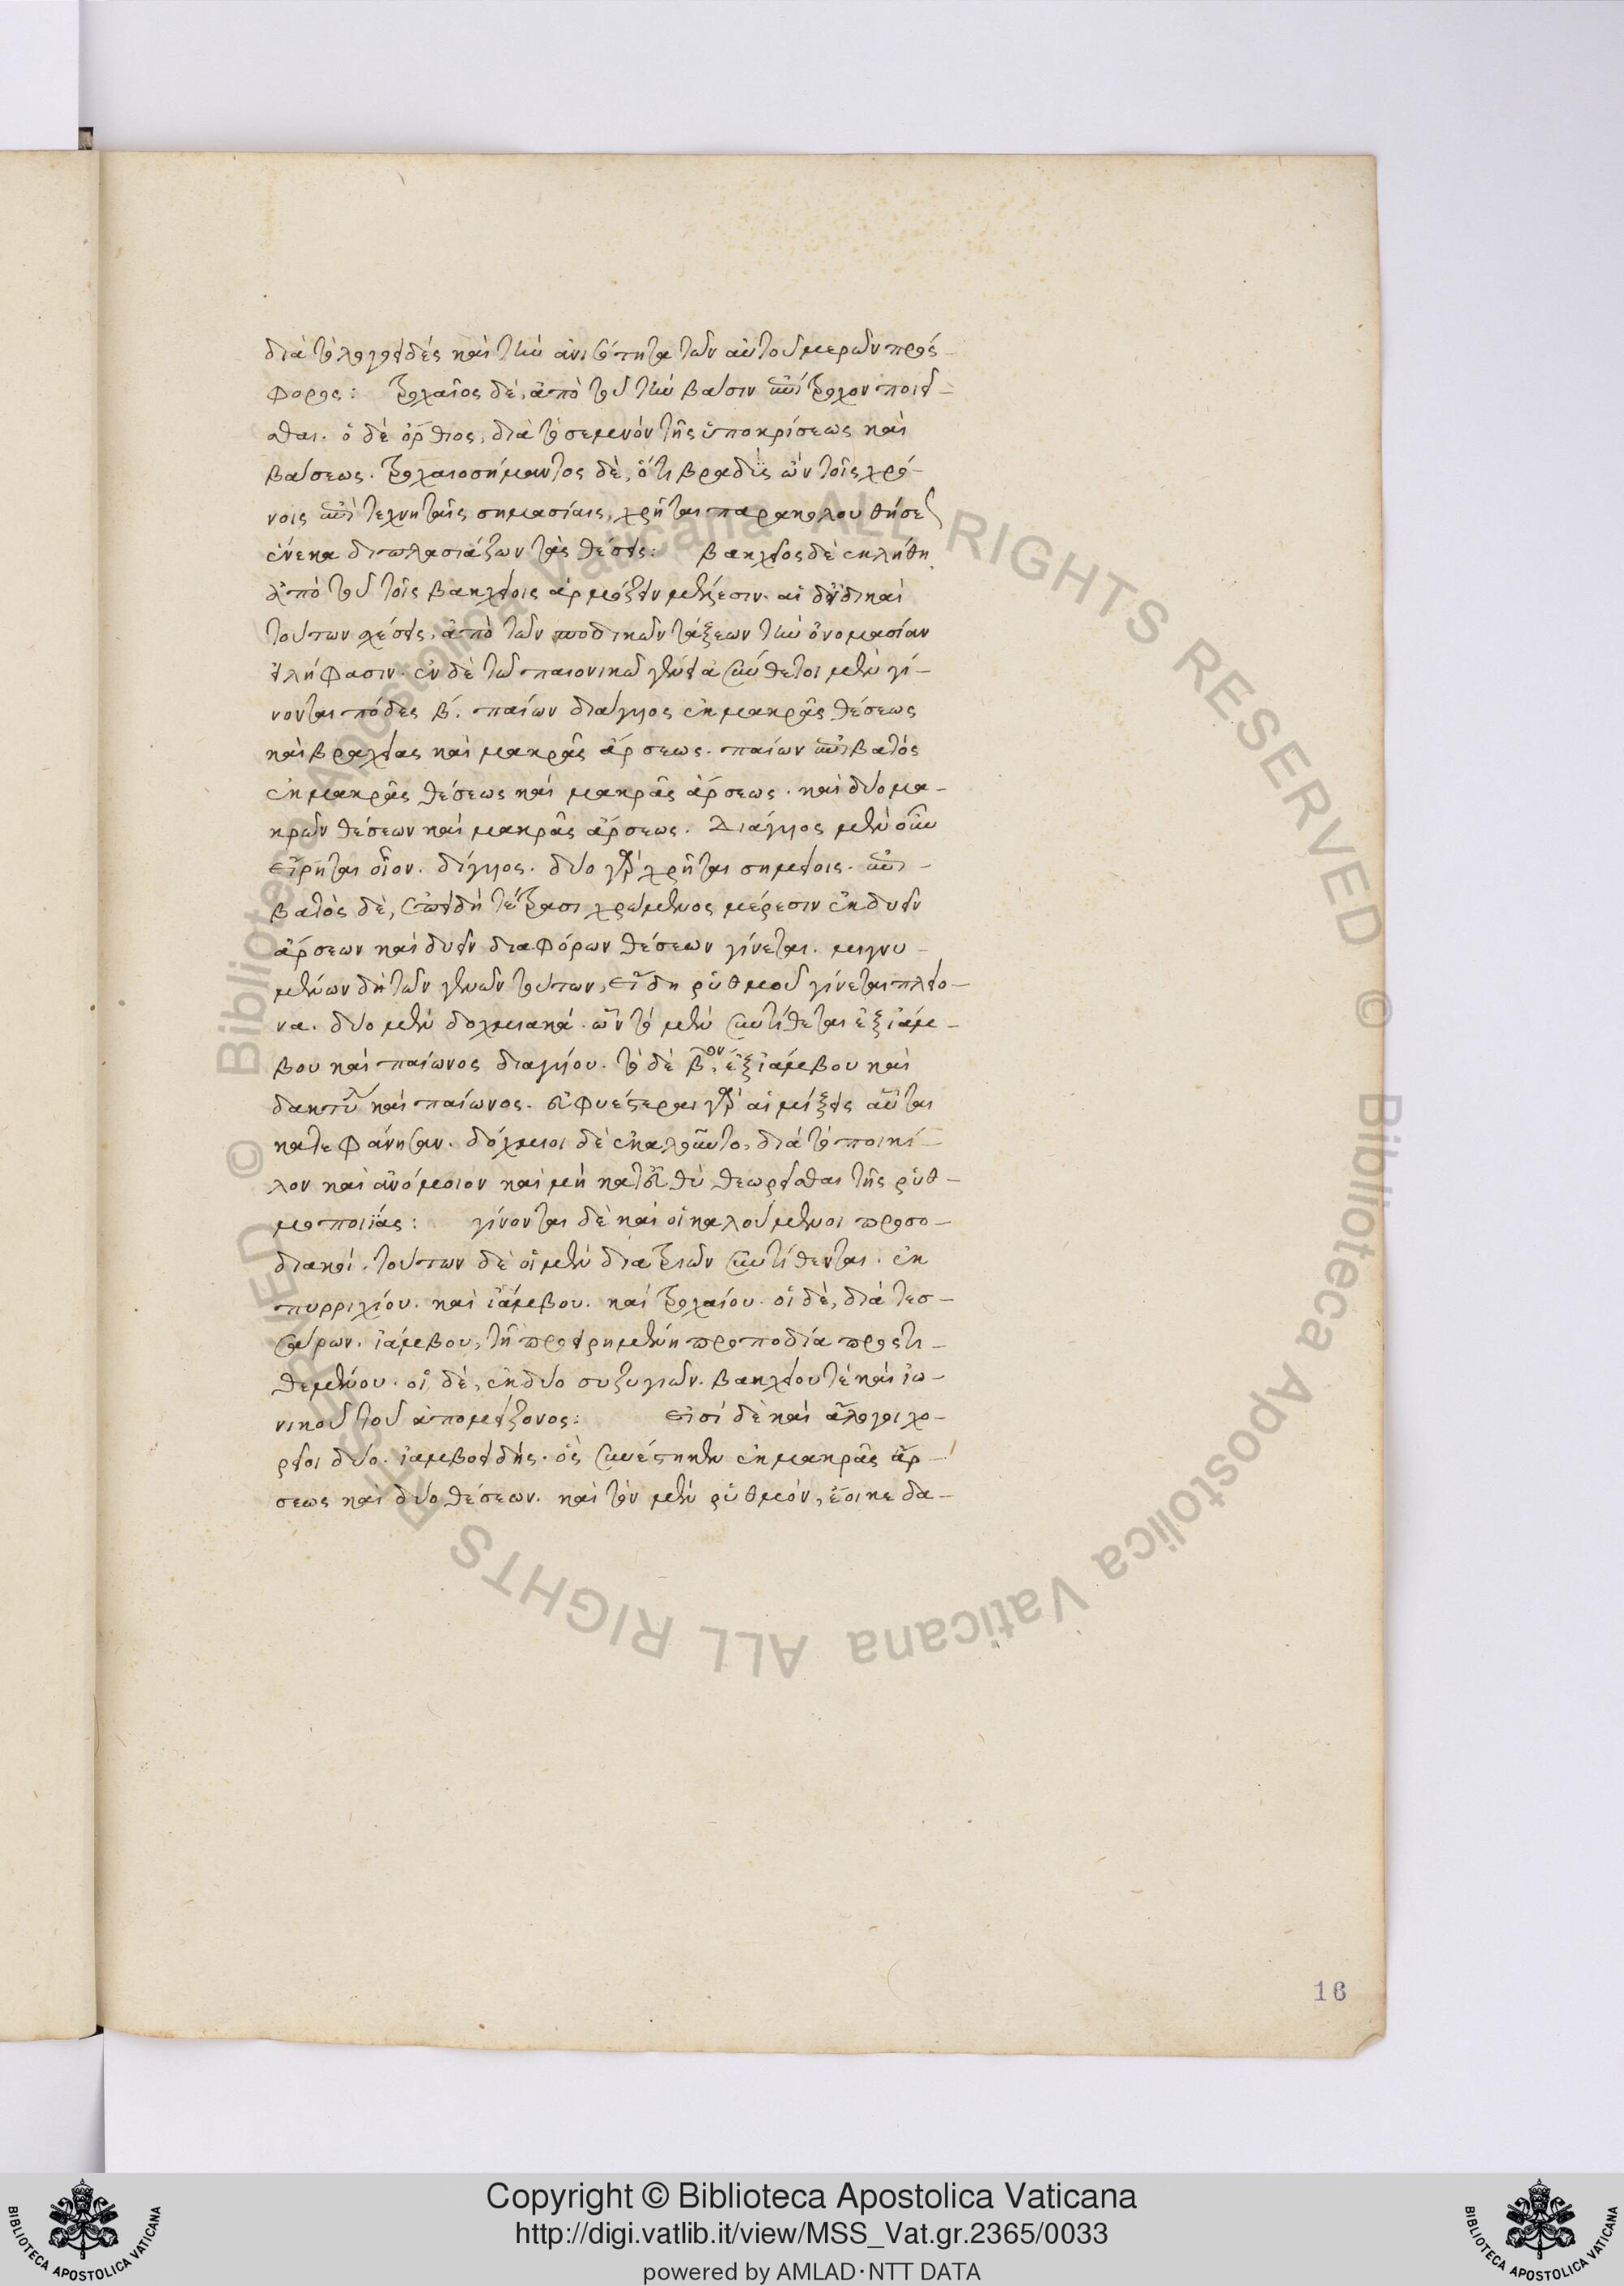 διὰ τὸ λογοειδές καὶ τὴν ἀνισότητα τῶν αὐτοῦ μερῶν πρόσ-
φορος: τροχαῖος δὲ, ἀπὸ τοῦ τὴν βάσιν ἐπίτροχον ποιεῖ-
σθαι. ὁ δὲ ὄρθιος, διὰ τὸ σεμνόν τῆς ὑποκρίσεως καὶ
βάσεως. τροχαιοσήμαντος δὲ, ὅτι βραδὺς ὢν τοῖς χρό-
νοις ἐπὶ τεχνηταῖς σημασίαις, χρῆται παρακολουθήσεως
ἕνεκα διπλασιάζων τὰς θέσεις: βακχεῖος δὲ ἐκλήθη
ἀπὸ τοῦ τοῖς βακχείοις ἁρμόζειν μέλεσιν. αἱ δὲ δὴ καὶ
τούτων σχέσεις, ἀπὸ τῶν ποδικῶν τάξεων τὴν ὀνομασίαν
εἰλήφασιν. ἐν δὲ τῷ παιονικῷ γένει ἀσύνθετοι μὲν γί-
νονται πόδες β΄. παίων διάγυιος ἐκ μακρᾶς θέσεως
καὶ βραχείας καὶ μακρᾶς ἄρσεως. παίων ἐπιβατός
ἐκ μακρᾶς θέσεως καὶ μακρᾶς ἄρσεως. καὶ δύο μα-
κρῶν θέσεων καὶ μακρᾶς ἄρσεως. Διάγυιος μὲν οὖν
εἴρηται οἷον. δίγυιος. δύο γὰρ χρῆται σημείοις. ἐπι-
βατὸς δὲ, ἐπειδὴ τέτρασι χρώμενος μέρεσιν ἐκ δυεῖν
ἄρσεων καὶ δυεῖν διαφόρων θέσεων γίνεται. μιγνυ-
μένων δὴ τῶν γενῶν τούτων, εἴδη ῥυθμοῦ γίνεται πλείο-
να. δύο μὲν δοχμιακά. ὧν τὸ μὲν συντίθεται ἐξ ἰάμ-
βου καὶ παίωνος διαγυίου. τὸ δὲ βον, ἐξ ἰάμβου καὶ
δακτύλου καὶ παίωνος. εὐφυέστεραι γὰρ αἱ μίξεις αὗται
κατεφάνησαν. δόχμιοι δὲ ἐκαλοῦντο, διὰ τὸ ποικί-
λον καὶ ἀνόμοιον καὶ μὴ κατ' εὐθὺ θεωρεῖσθαι τῆς ῥυθ-
μοποιίας: γίνονται δὲ καὶ οἱ καλούμενοι προσο-
διακοί. τούτων δὲ οἱ μὲν διὰ τριῶν συντίθενται. ἐκ
πυρριχίου. καὶ ἰάμβου. καὶ τροχαίου. οἱ δὲ, διὰ τεσ-
σάρων. ἰάμβου, τῇ προειρημένῃ προποδίᾳ προστι-
θεμένου. οἱ δὲ, ἐκ δύο συζυγιῶν. βακχείου τὲ καὶ ἰω-
νικοῦ τοῦ ἀπομείζονος: εἰσὶ δὲ καὶ ἄλογοι χο-
ρεῖοι δύο. ἰαμβοειδής. ὃς συνέστηκεν ἐκ μακρᾶς ἄρ-
σεως καὶ δύο θέσεων. καὶ τὸν μὲν ῥυθμόν, ἔοικε δα-
16
© Biblioteca Apostolica Vaticana ALL RIGHTS RESERVED © Biblioteca Apostolica Vaticana ALL RIGHTS RESERVED
BIBLIOTECA APOSTOLICA VATICANA
Copyright © Biblioteca Apostolica Vaticana
http://digi.vatlib.it/view/MSS_Vat.gr.2365/0033
powered by AMLAD·NTT DATA
BIBLIOTECA APOSTOLICA VATICANA